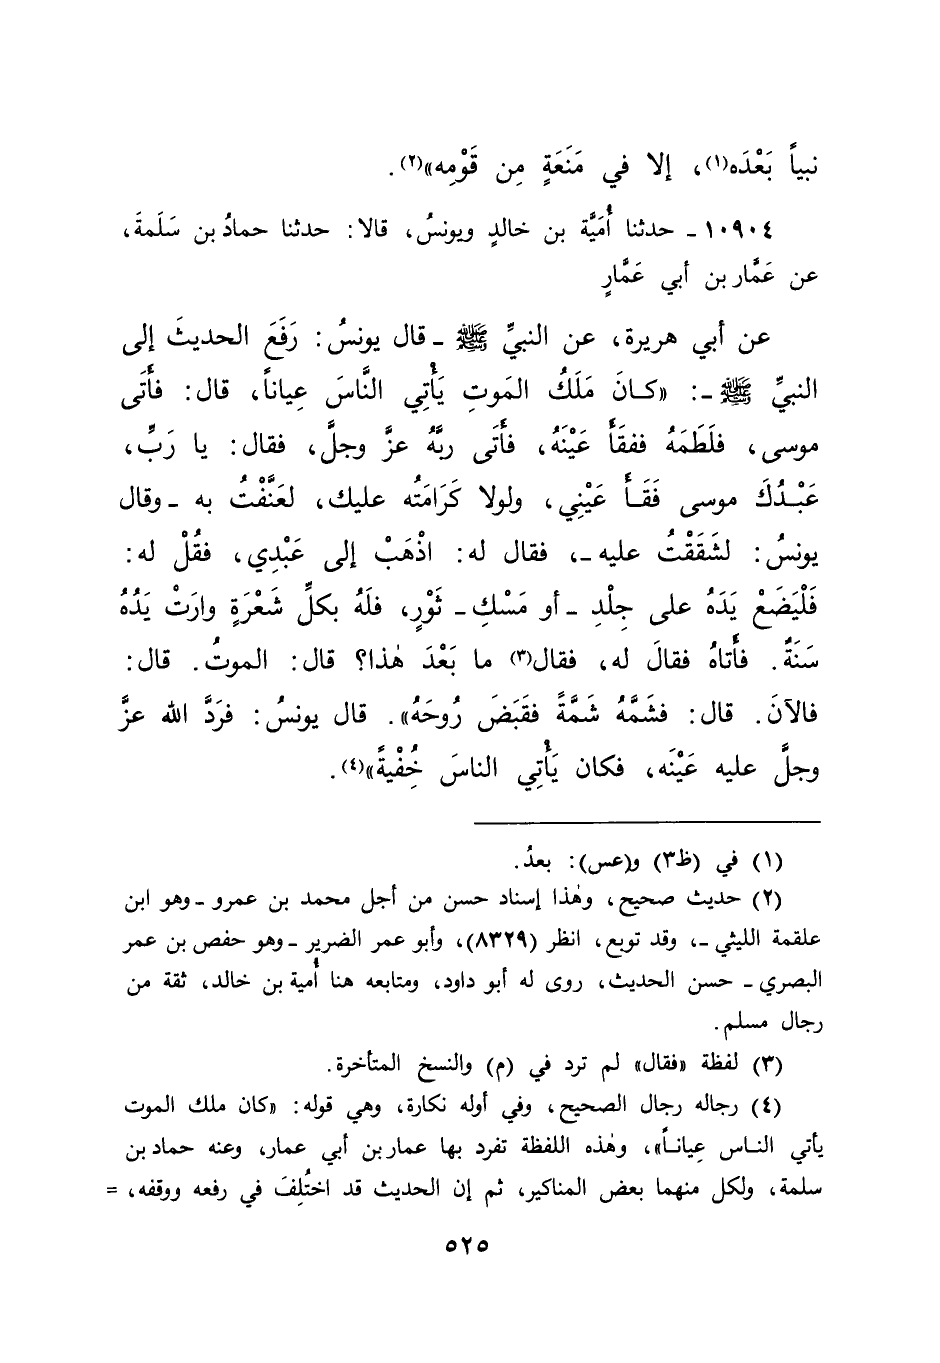 نبياً بَعْدَه(١)، إلا في مَنَعَةٍ مِن قَوْمِه»(٢).
١٠٩٠٤ - حدثنا أُمَيَّة بن خالدٍ ويونسُ، قالا: حدثنا حمادُ بن سَلَمةَ،
عن عَمَّار بن أبي عَمَّارٍ
عن أبي هريرة، عن النبيِّ ﷺ - قال يونسُ: رَفَعَ الحديثَ إلى
النبيِّ ﷺ -: «كـانَ مَلَكُ المَوتِ يَأْتِي النَّاسَ عِياناً، قال: فأَتَى
موسى، فلَطَمَهُ ففقَأَ عَيْنَهُ، فأَتَى ربَّهُ عزَّ وجلَّ، فقال: يا رَبِّ،
عَبْـدُكَ موسى فَقَـأَ عَيْنِي، ولولا كَرَامَتُه عليك، لعَنَّفْتُ به - وقال
يونسُ: لشَقَقْتُ عليه -، فقال له: اذْهَبْ إلى عَبْدِي، فقُلْ له:
فَلْيَضَعْ يَدَهُ على جِلْدِ - أو مَسْكِ - ثَوْرٍ، فلَهُ بكلِّ شَعْرَةٍ وارَتْ يَدُهُ
سَنَةٌ. فأَتاهُ فقالَ له، فقال(٣) ما بَعْدَ هٰذا؟ قال: الموتُ. قال:
فالآنَ. قال: فشَمَّهُ شَمَّةً فقَبَضَ رُوحَهُ». قال يونسُ: فرَدَّ الله عزَّ
وجلَّ عليه عَيْنَه، فكان يَأْتِي الناسَ خُفْيةً»(٤).
(١) في (ظ٣) و(عس): بعدُ.
(٢) حديث صحيح، وهٰذا إسناد حسن من أجل محمد بن عمرو - وهو ابن
علقمة الليثي -، وقد توبع، انظر (٨٣٢٩)، وأبو عمر الضرير - وهو حفص بن عمر
البصري - حسن الحديث، روى له أبو داود، ومتابعه هنا أُمية بن خالد، ثقة من
رجال مسلم.
(٣) لفظة «فقال» لم ترد في (م) والنسخ المتأخرة.
(٤) رجاله رجال الصحيح، وفي أوله نكارة، وهي قوله: «كان ملك الموت
يأتي النـاس عِيانـاً»، وهٰذه اللفظة تفرد بها عمار بن أبي عمار، وعنه حماد بن
سلمة، ولكل منهما بعض المناكير، ثم إن الحديث قد اختُلِفَ في رفعه ووقفه، =
٥٢٥